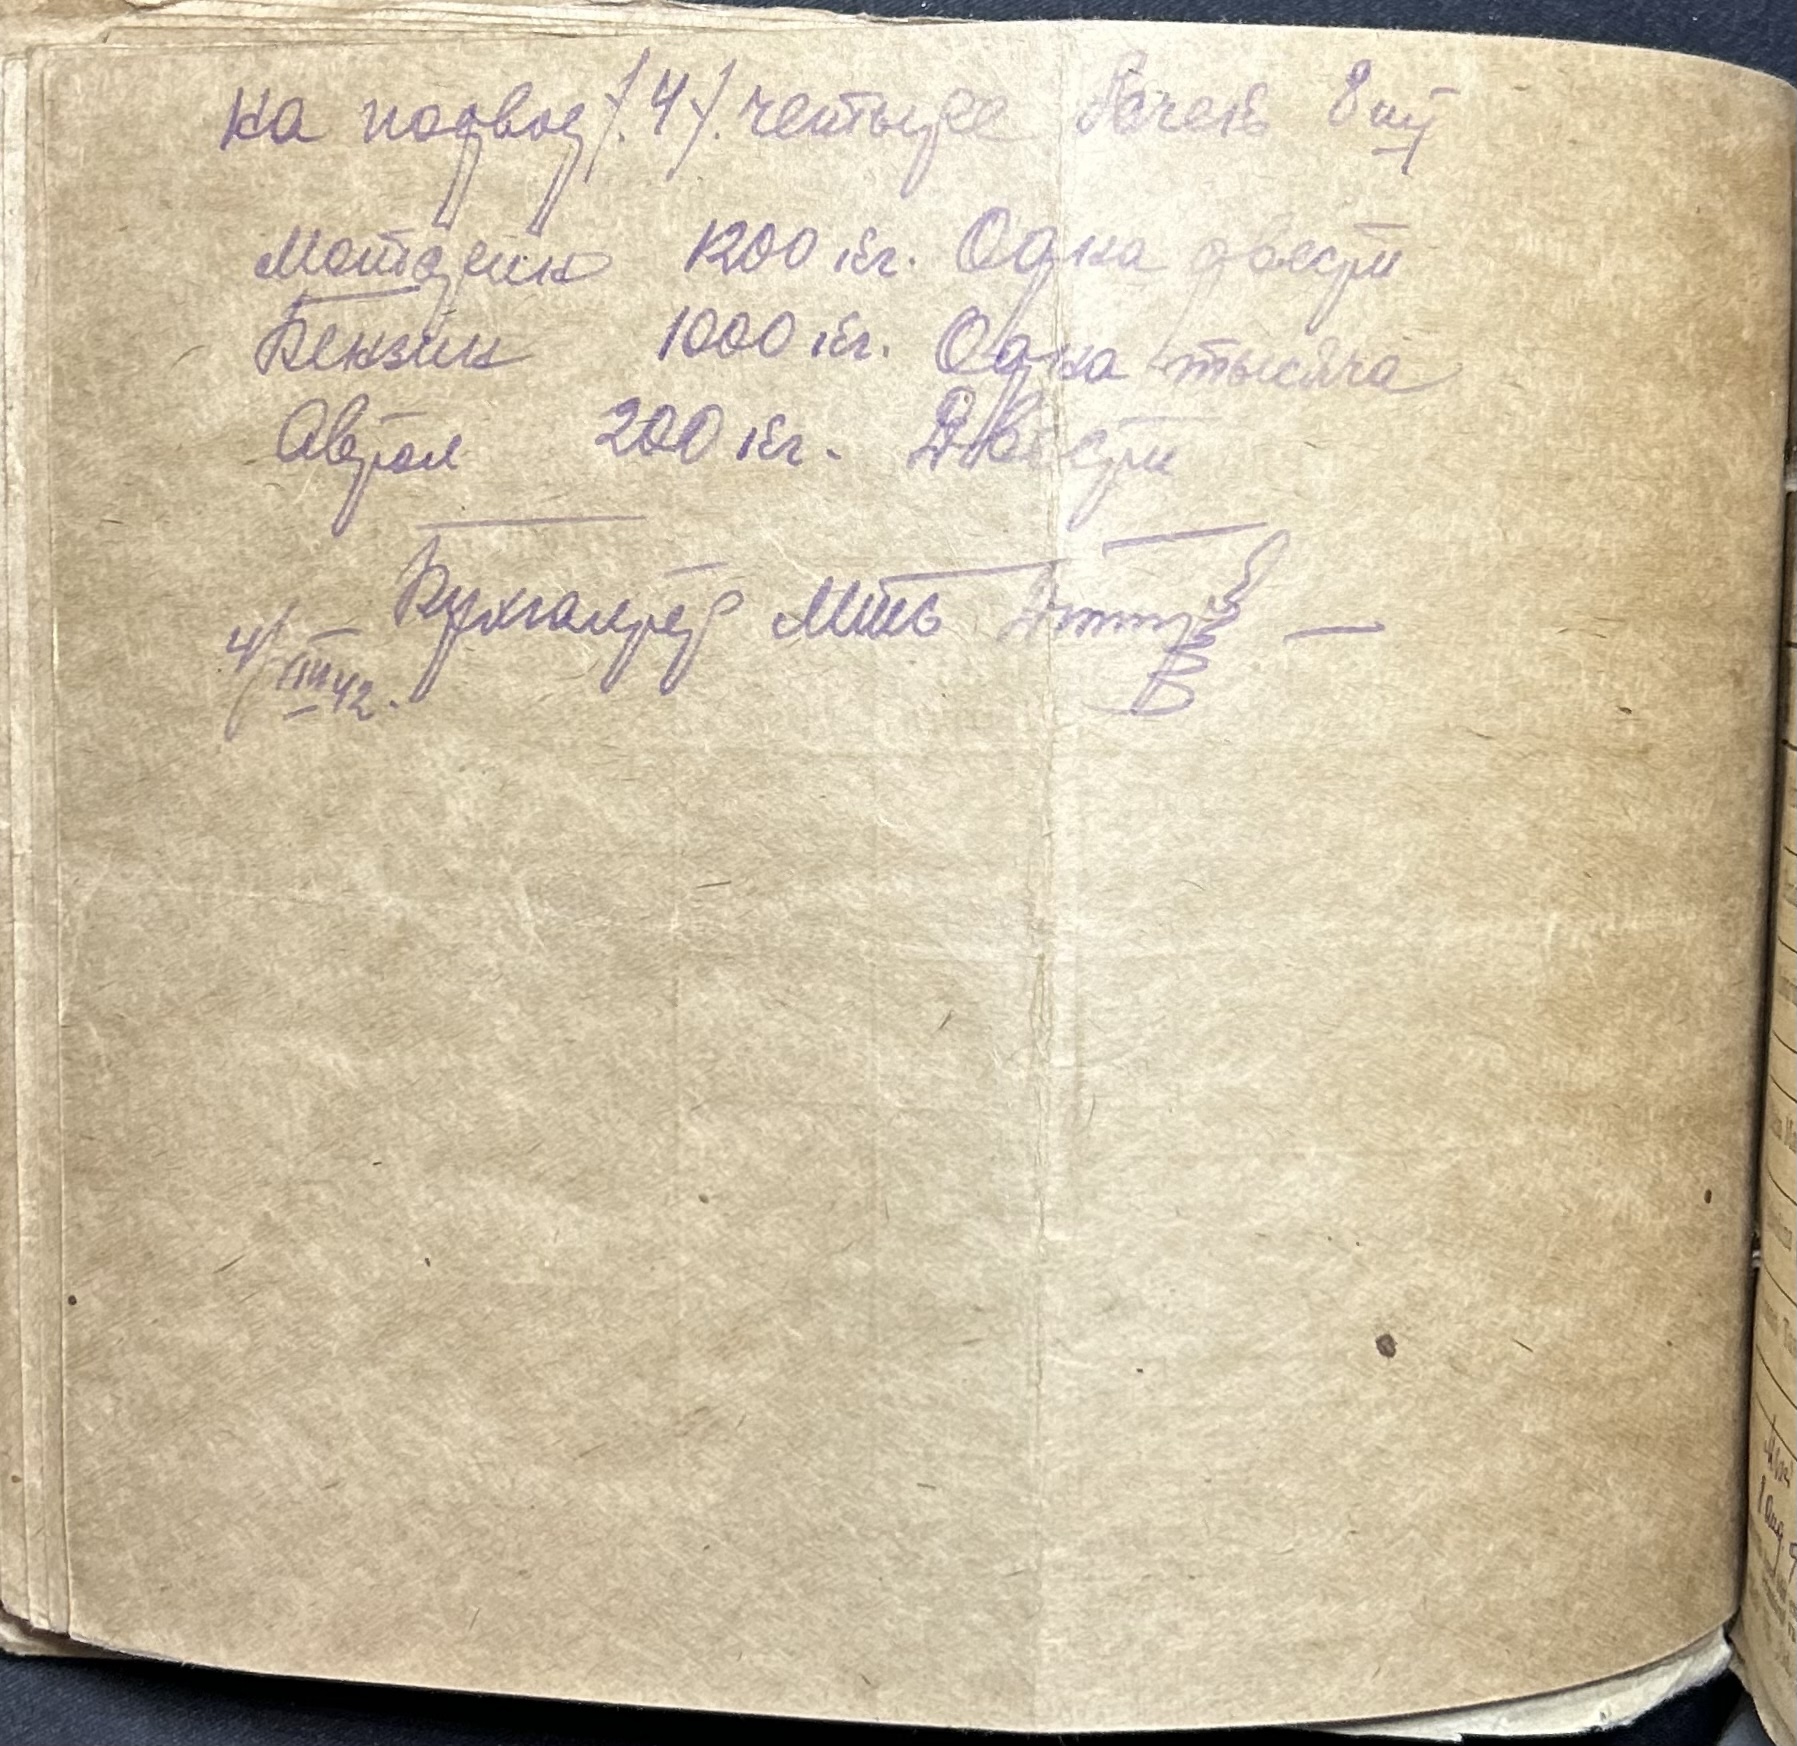 на подвод /.4/. четыре бочек 8 шт
Моторин 1200 кг. Одна двести
Бензин 1000 кг. Одна тысяча
Автол 200 кг. Двести
Бухгалтер МТС
4/III 42.